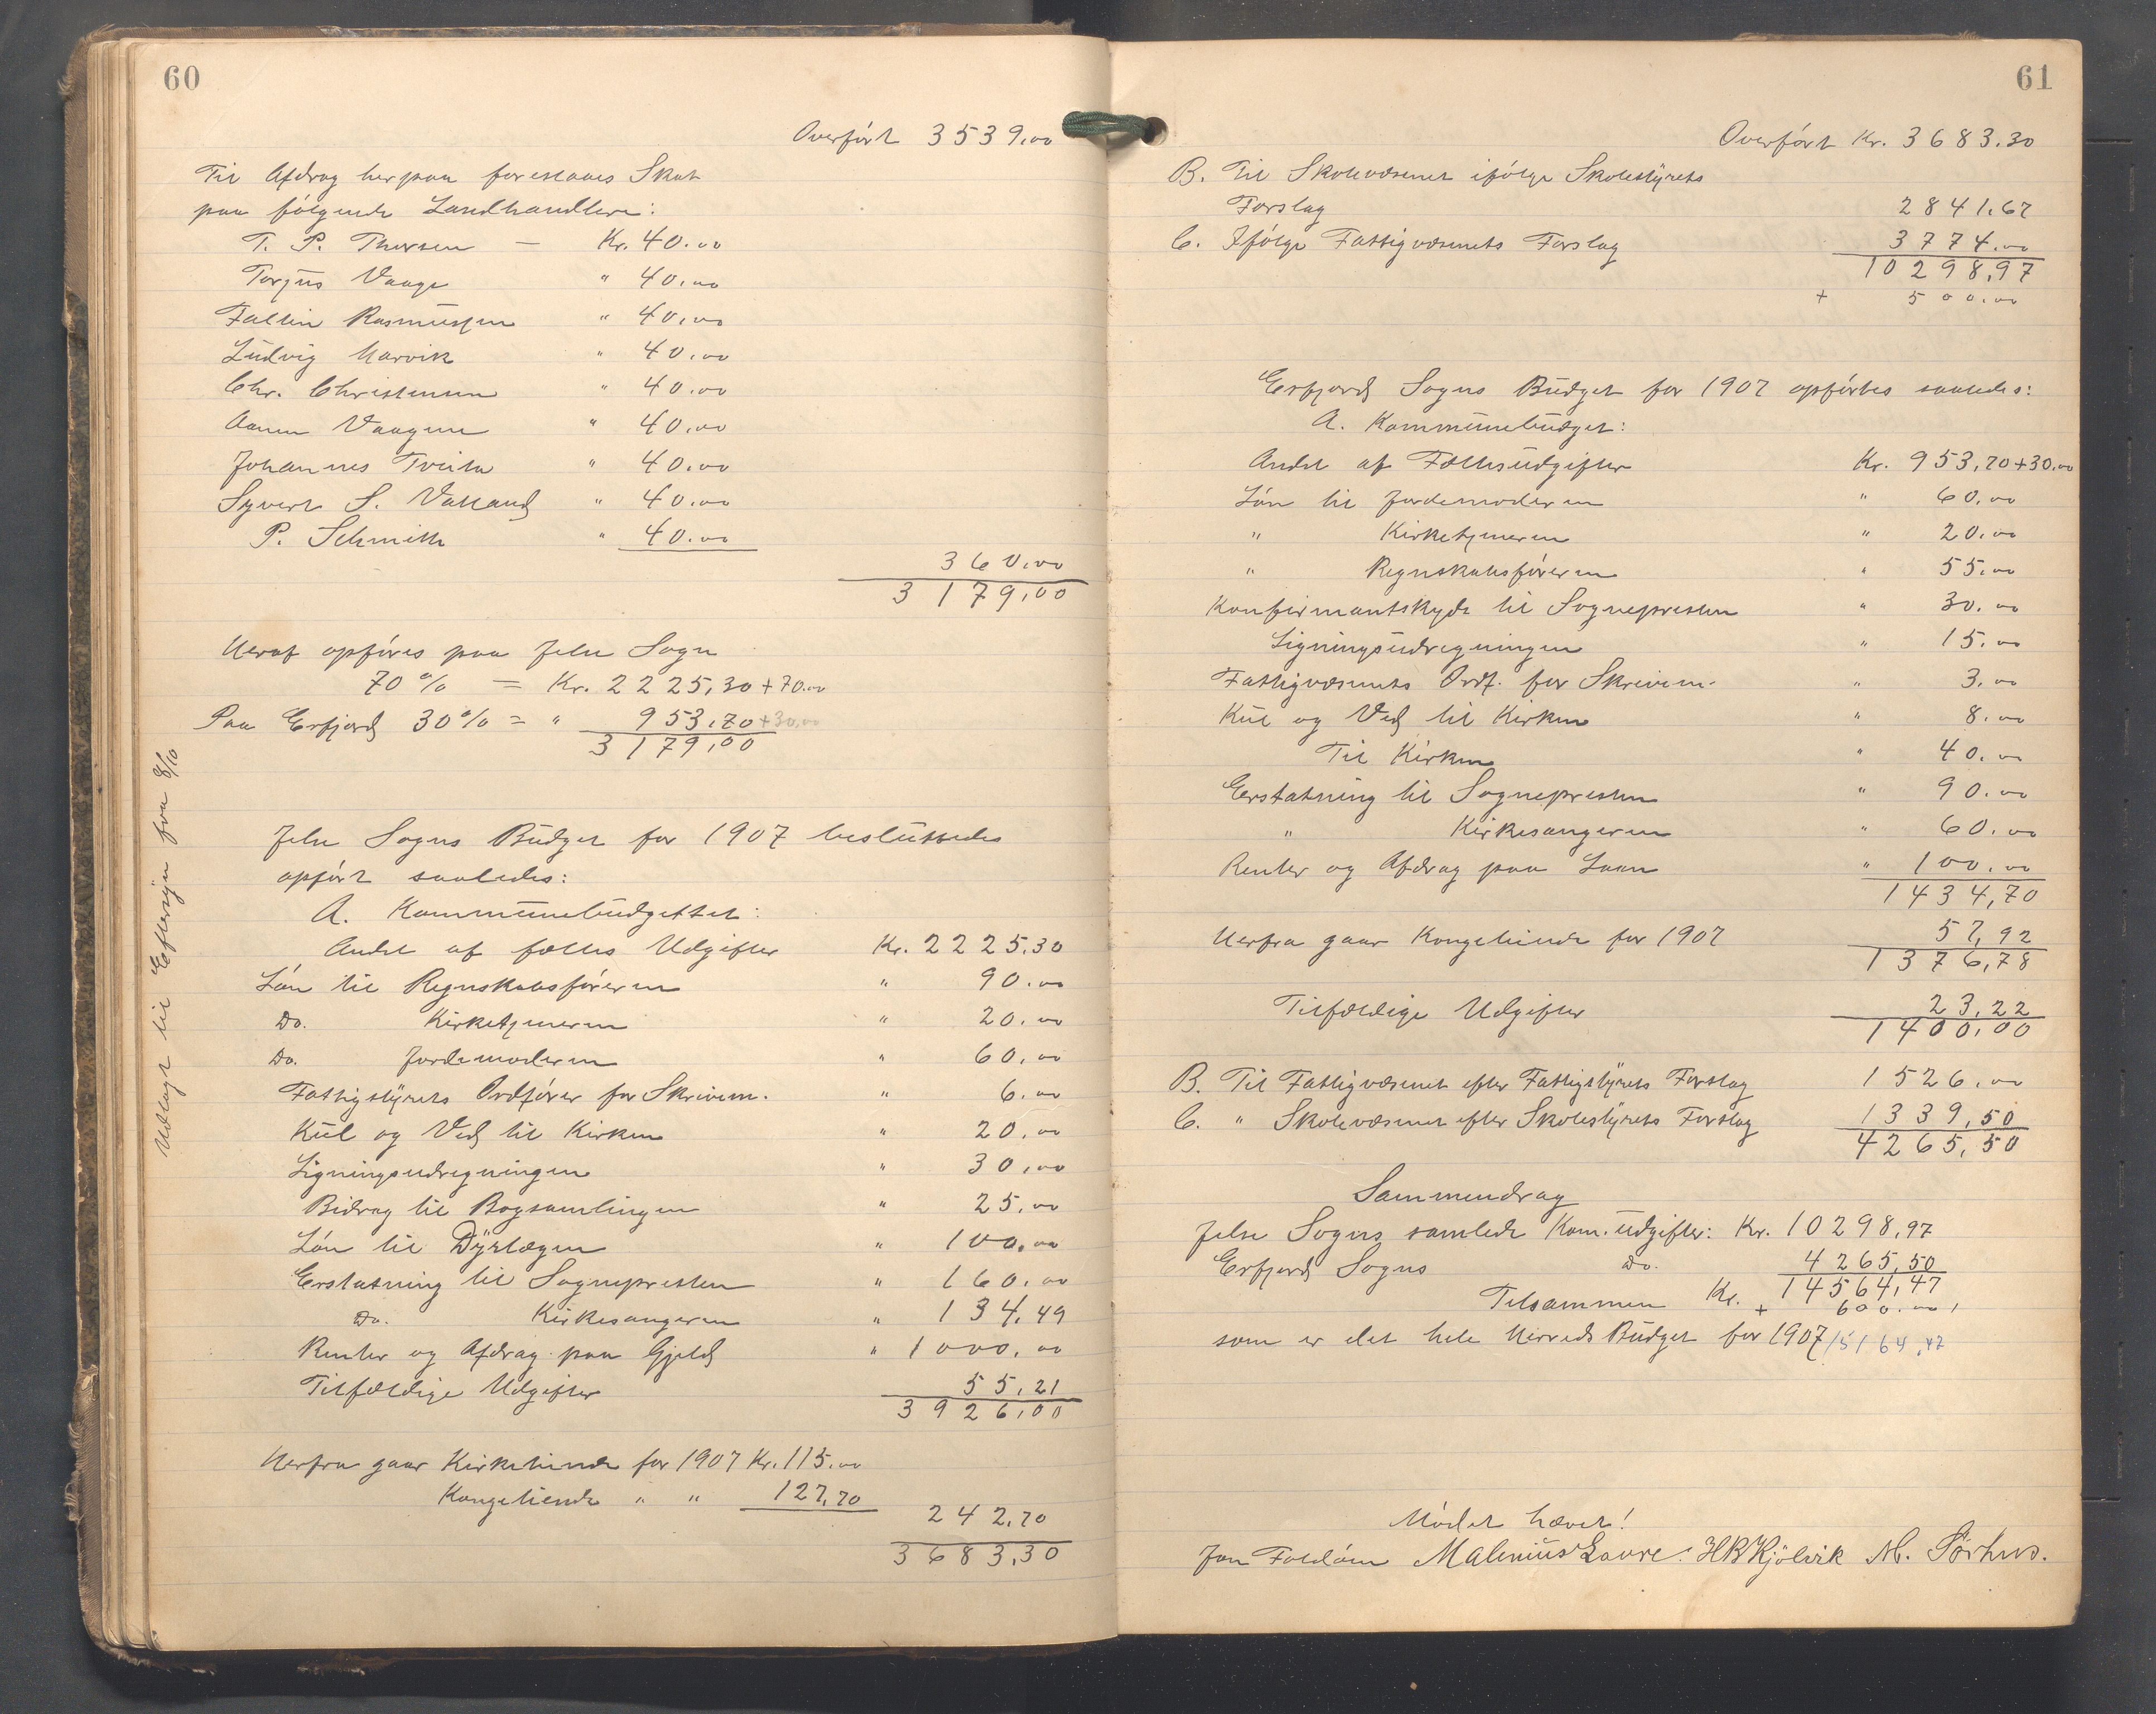 60
Overført 3539.00
Til Afdrag herpaa foreslaaes Skat
paa følgende Landhandlere:
T. P. Thorsen — Kr. 40.00
Torjus Vaage " 40.00
Faltin Rasmussen " 40.00
Ludvig Marvik " 40.00
Chr. Christensen " 40.00
Aanen Vaagene " 40.00
Johannes Tveita " 40.00
Syvert S. Vatland " 40.00
P. Schmith " 40.00
360.00
3179,00
Heraf opføres paa Jelse Sogn
70 % = Kr. 2225,30 + 70.00
Paa Erfjord 30 % = " 953,70 + 30,00
3179,00
Udlagt til Eftersyn fra 8/10
Jelse Sogns Budget for 1907 besluttedes
opført saaledes:
A. Kommunebudgettet:
Andel af fælles Udgifter Kr. 2225.30
Løn til Regnskabsføreren " 90.00
Do. Kirketjeneren " 20.00
Do. Jordemoderen " 60.00
Fattigstyrets Ordfører for Skrivem. " 6.00
Kul og Ved til Kirken " 20.00
Ligningsudregningen " 30.00
Bidrag til Bogsamlingen " 25.00
Løn til Dyrlægen " 100.00
Erstatning til Sognepresten " 160.00
Do. Kirkesangeren " 134,49
Renter og Afdrag paa Gjeld " 1000.00
Tilfældige Udgifter 55,21
3926,00
Herfra gaar Kirketiende for 1907 Kr. 115.00
Kongetiende " " 127,70
242,70
3683,30
61
Overført Kr. 3683.30
B. Til Skolevæsenet ifølge Skolestyrets
Forslag 2841.67
C. Ifølge Fattigvæsenets Forslag 3774.00
10298,97
+ 500.00
Erfjord Sogns Budget for 1907 opførtes saaledes:
A. Kommunebudget:
Andel af Fællesudgifter Kr. 953,70+30.00
Løn til Jordemoderen " 60.00
" Kirketjeneren " 20.00
" Regnskabsføreren " 55.00
Konfirmantskyds til Sognepresten " 30.00
Ligningsudregningen " 15.00
Fattigvæsenets Ordf. for Skrivem. " 3.00
Kul og Ved til Kirken " 8.00
Til Kirken " 40.00
Erstatning til Sognepresten " 90.00
" Kirkesangeren " 60.00
Renter og Afdrag paa Laan " 100.00
1434,70
Herfra gaar Kongetiende for 1907 57,92
1376,78
Tilfældige Udgifter 23,22
1400,00
B. Til Fattigvæsenet efter Fattigstyrets Forslag 1526.00
C. " Skolevæsenet efter Skolestyrets Forslag 1339,50
4265,50
Sammendrag
Jelse Sogns samlede Kom. udgifter: Kr. 10298,97
Erfjord Sogns Do. 4265,50
Tilsammen Kr. 14564,47
+ 600.00
som er det hele Herreds Budget for 1907 15164,47
Mødet hævet!
Jon Foldøen Malenius Laure. HB Kjølvik M. Sørhus.